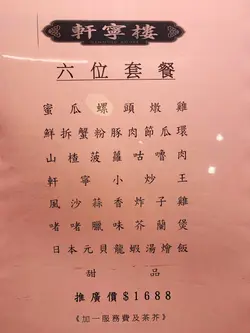 軒寧樓
六位套餐
蜜瓜螺頭燉雞
鮮拆蟹粉豚肉節瓜環
山楂菠蘿咕嚕肉
軒寧小炒王
風沙蒜香炸子雞
啫啫臘味芥蘭煲
日本元貝龍蝦湯燴飯
甜品
推廣價$1688
《加一服務費及茶芥》